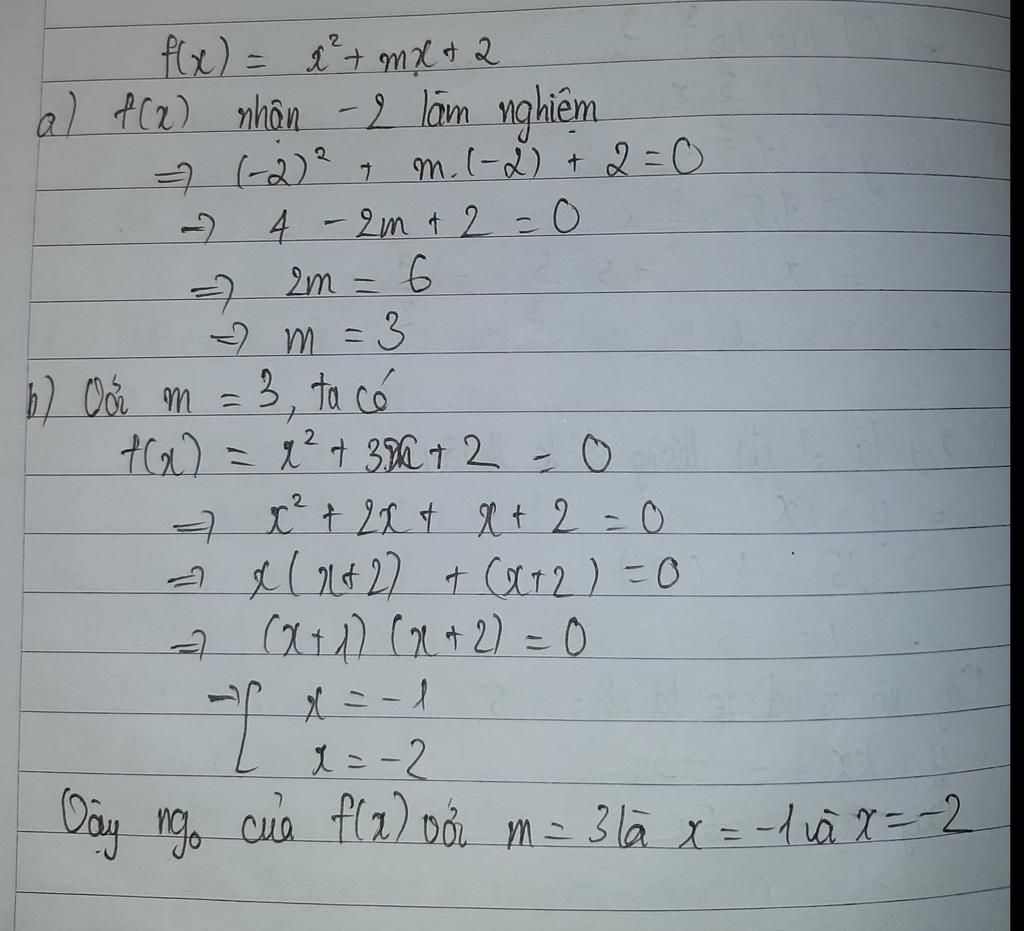 f(x) = x² + mx + 2
a) f(x) nhận -2 làm nghiệm
=> (-2)² + m.(-2) + 2 = 0
=> 4 - 2m + 2 = 0
=> 2m = 6
=> m = 3
b) Với m = 3, ta có
f(x) = x² + 3x + 2 = 0
=> x² + 2x + x + 2 = 0
=> x(x+2) + (x+2) = 0
=> (x+1)(x+2) = 0
=> [ x = -1
x = -2
Vậy ngo của f(x) với m = 3 là x = -1 và x = -2